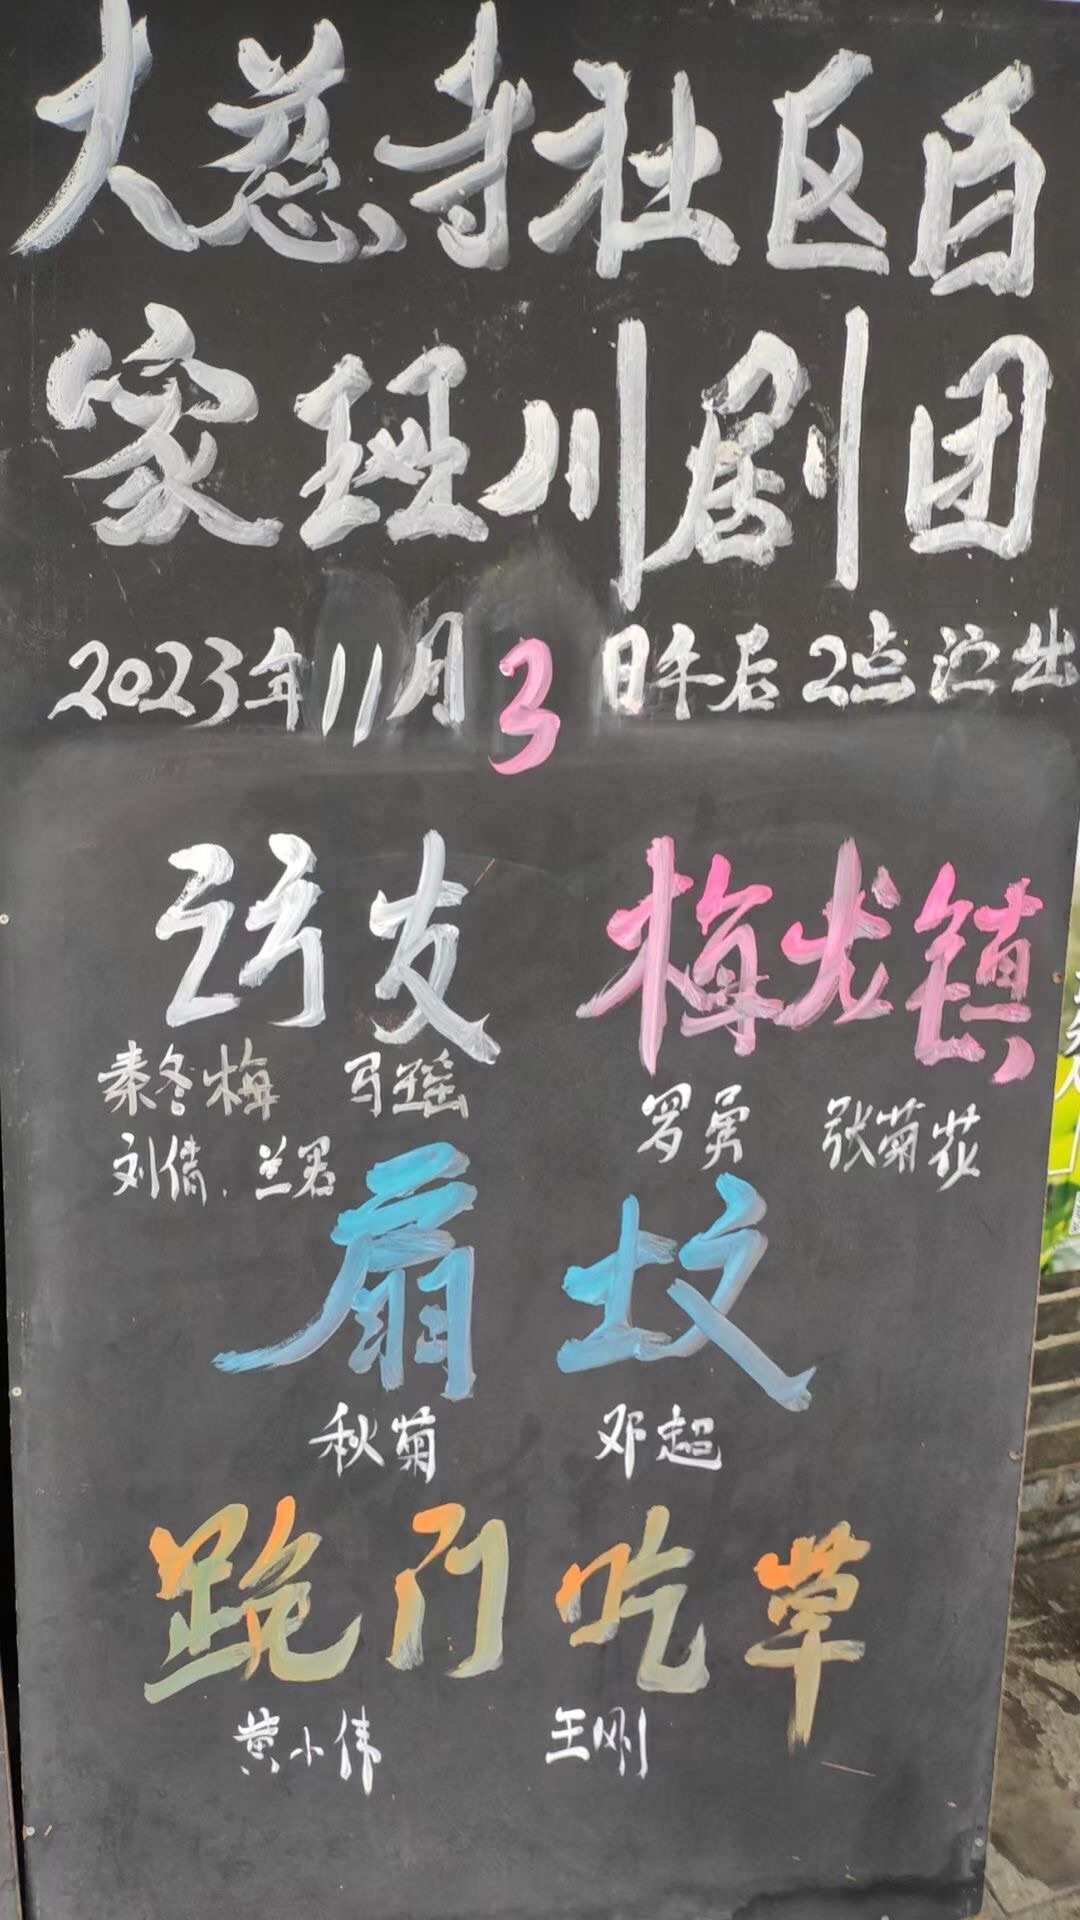 大慈寺社区百
家班川剧团
2023年11月3日午后2点演出
访友 梅龙镇
秦冬梅 马瑶
刘倩、兰君
罗勇 张菊花
扇坟
秋菊 邓超
跪门吃草
黄小伟 王刚